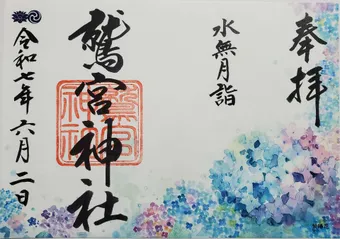 奉拝
水無月詣
鷲宮神社
令和七年六月二日